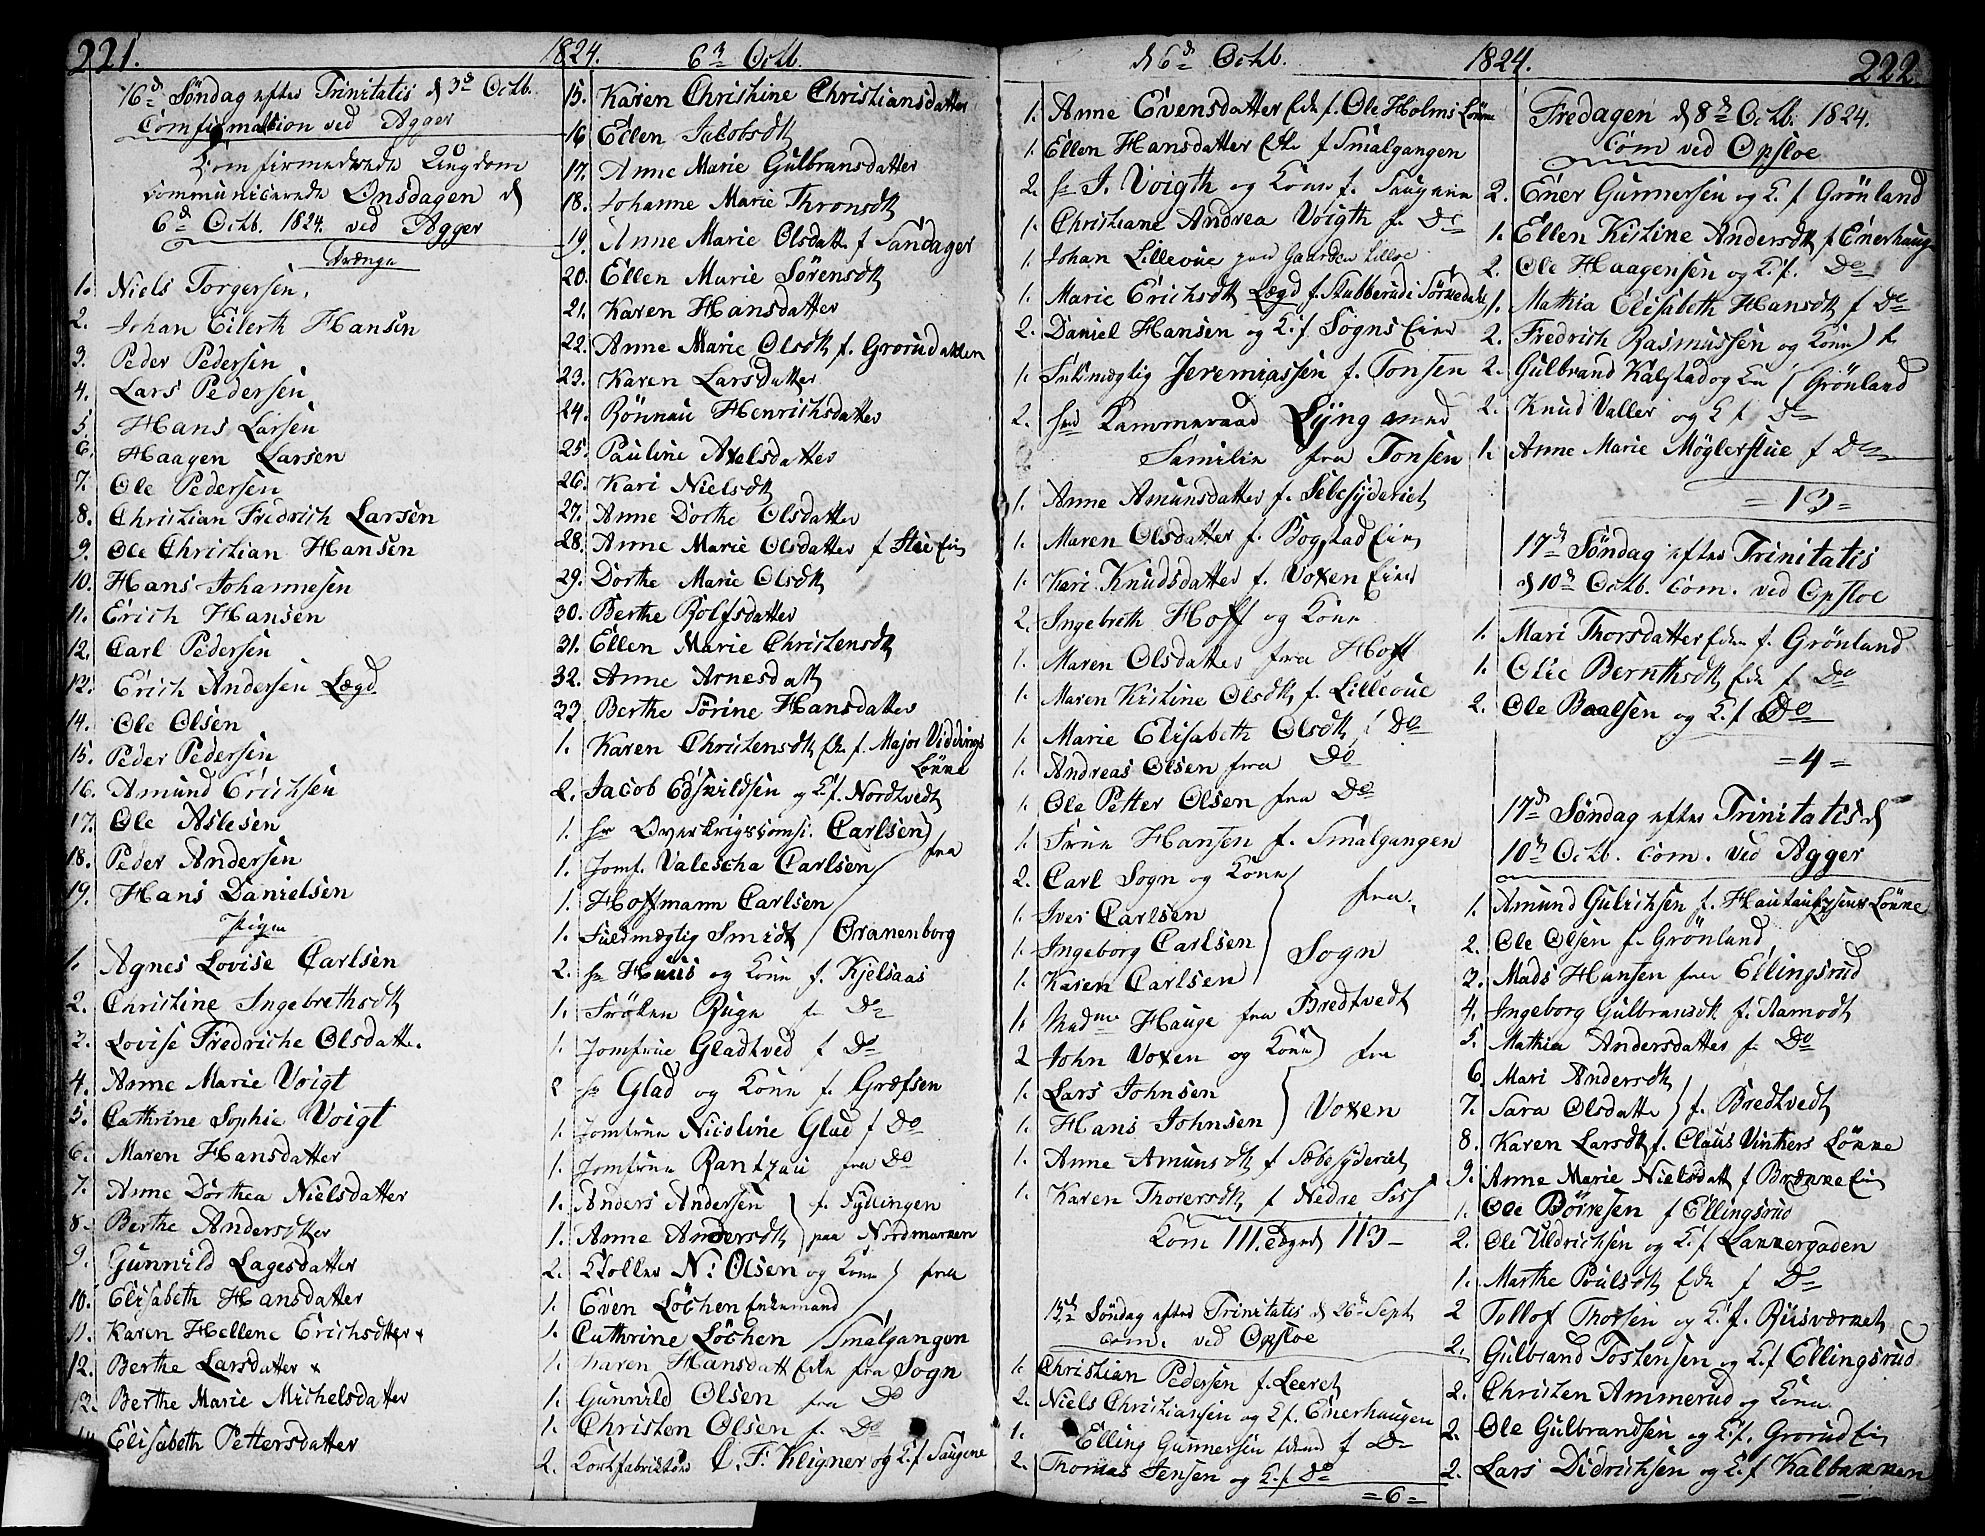 221.
1824. 6te Octb.
16de Søndag efter Trinitatis d 3de Octb.
Comfirmation ved Agger
Comfirmerede Ungdom
communicerede Onsdagen d
6de Octb. 1824. ved Agger
Drænge
1. Niels Torgersen,
2. Johan Eilerth Hansen
3. Peder Pedersen
4. Lars Pedersen
5. Hans Larsen
6. Haagen Larsen
7. Ole Pedersen
8. Christian Fredrich Larsen
9. Ole Christian Hansen
10. Hans Johannesen
11. Erich Hansen
12. Carl Pedersen
13. Erich Andersen Lægd
14. Ole Olsen
15. Peder Pedersen
16. Amund Erichsen
17. Ole Aslesen
18. Peder Andersen
19. Hans Danielsen
Piger
1. Agnes Lovise Carlsen
2. Christine Ingebrethsdtr
3. Lovise Fredriche Olsdatter
4. Anne Marie Voigt
5. Cathrine Sophie Voigt
6. Maren Hansdatter
7. Anne Dorthea Nielsdatter
8. Berthe Andersdtter
9. Gunnild Lagesdatter
10. Elisabeth Hansdatter
11. Karen Hellene Erichsdtter
12. Berthe Larsdatter
13. Berthe Marie Michelsdatter
14. Elisabeth Pettersdatter
15. Karen Christine Christiansdatter
16 Ellen Jacobsdtr
17. Anne Marie Gulbransdatter
18. Johanne Marie Thronsdtr
19. Anne Marie Olsdatt f Sandager
20. Ellen Marie Sörensdtr
21. Karen Hansdatter
22. Anne Marie Olsdtr f. Grorudakken
23. Karen Larsdatter
24. Rönnau Henrichsdatter
25. Pauline Axelsdatter
26. Kari Nielsdtr
27. Anne Dorthe Olsdatter
28. Anne Marie Olsdatter f
29. Dorthe Marie Olsdtr
30. Berthe Rolfsdatter
31. Ellen Marie Christensdtr
32. Anne Arnesdatt
33 Berthe Sörine Hansdatter
1. Karen Christensdtr f. Major Viddings
Lönne
2. Jacob Edskildsen og K. f. Nordtvedt
1. hr Overkrigscomsr. Carlsen
1. Jomf. Valescha Carlsen fra
1. Hoffmann Carlsen
1. Fuldmægtig Smidt Oranenborg
2. hr Huus og Kone f. Kjelsaas
1. Fröken Ruge f. Do
1. Jomfrue Gladtved f Do
2 hr Glad og Kone f. Græfsen
1. Jomfrue Nicoline Glad f Do
1. Jomfrue Rantzau fra Do
1. Anders Andersen f. Fyllingen
1. Anne Andersdtr paa Nordmarken
2. Kloller N: Olsen og Kone fra
1. Even Löchen Enkemand
1. Cathrine Löchen Smalgangen
1. Karen Hansdatt Enke fra Sogn
1. Gunnild Olsen fra Do
1. Christen Olsen f. Do
2. Korkfabrikeur C. F. Kligner og K. f Saugene
d 6de Octb. 1824. 222.
1. Anne Evensdatter Enke f. Ole Holms Lönne
1. Ellen Hansdatter f Smalgangen
2. hr J. Voigth og Kone f. Saugene
1. Christiane Andrea Voigth f. Do
1. Johan Lillevue
1. Marie Erichsdtr Lægd f. Stubberud i Sörkedalen
2. Daniel Hansen og K. f Sogns Eier
1. Fuldmægtig Jeremiassen f. Tonsen
2. hr Kammeraad Lÿng med
Familie fra Tonsen
1. Anne Amunsdatter f. Sebesyderiet
1. Maren Olsdatter f. Bogstad Eier
1. Kari Knudsdatter f. Voxen Eier
2. Ingebreth Hoff og Kone
1. Maren Olsdatter fra Hoff
1. Maren Kirstine Olsdtr f. Lillevue
1. Marie Elisabeth Olsdtr f Do
1. Andreas Olsen fra Do
1. Ole Petter Olsen fra Do
1. Frue Hansen f. Smalgangen
2. Carl Sogn og Kone
1. Iver Carlsen fra
1. Ingeborg Carlsen Sogn
1. Karen Carlsen
1. Madme Hauge fra Bredtvedt
2 John Voxen og Kone fra
1. Lars Johnsen
1. Hans Johnsen Voxen
1. Anne Amunsdtr f Sæbesyderiet
1. Karen Thorersdtr f Nedre Foss
Kom 111. 113
15de Søndag efter Trinitatis d 26de Sept
com. ved Opsloe
1. Christian Pedersen f. Leeret
2. Niels Christiansen og K f. Enerhaugen
1. Elling Gunnersen f Do
2. Thomas Jensen og K. f Do
=6=
Fredagen d 8de Octb. 1824.
Com ved Opsloe
2. Ener Gunnersen og K. f Grönland
1. Ellen Kistine Andersdtr f Enerhaug
2. Ole Haagensen og K. f. Do
1. Mathia Elisabeth Hansdtr f Do
2. Fredrich Rasmussen og Kone f.
2. Gulbrand Kalstad og K Grönland
2. Knud Valler og K f Do
1. Anne Marie Möglerstue f Do
=13=
17de Søndag efter Trinitatis
d 10de Octb. com. ved Opsloe
1. Mari Thorsdatter Enke f. Grönland
1. Olie Bernthsdtr Enke f Do
2. Ole Baalsen og K. f Do
=4=
17de Søndag efter Trinitatis d
10de Octb. com. ved Agger
1. Amund Gulichsen f. Lönne
2. Ole Olsen f. Grönland
3. Mads Hansen fra Ellingsrud
4. Ingeborg Gulbransdtr f. Aamodt
5. Mathia Andersdatter f. Do
6. Mari Andersdtr
7. Sara Olsdatter f. Bredtvedt
8. Karen Larsdtr f. Claus Vinthers Lönne
9. Anne Marie Nielsdatt f Brænne Eie
1. Ole Börresen f Ellingsrud
2. Ole Uldrichsen og K. f Lakkergaden
1. Marthe Poulsdtr Enke f Do
2 Tollof Thorsen og K. f. Riisværket
2. Gulbrand Tostensen og K. f Ellingsrud
2. Christen Ammerud og Kone
2. Ole Gulbrandsen og K. f. Grorud Eie
2. Lars Didrichsen og K. f Kalbakken